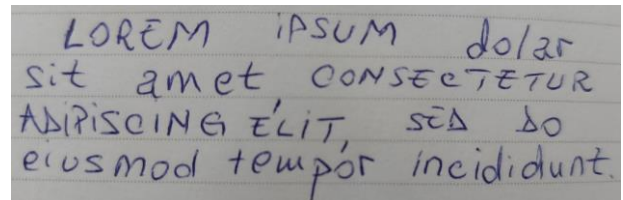 LOREM iPSUM dolar
sit amet CONSECTETUR
ADIPISCING ELIT, SED DO
eiusmod tempor incididunt.